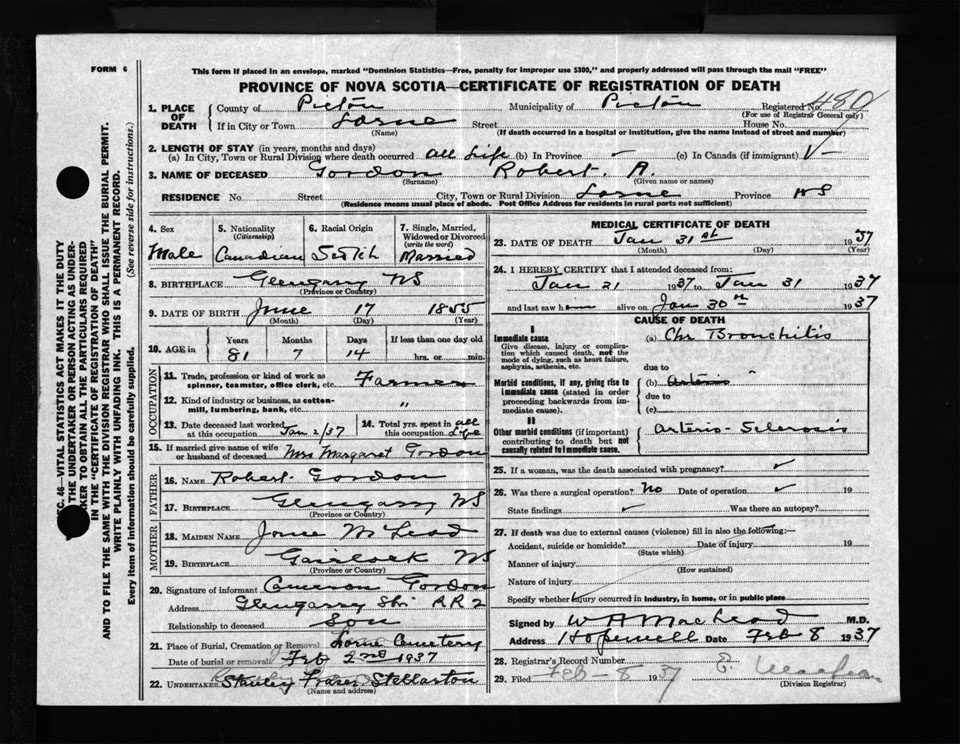 FORM 6
This form if placed in an envelope, marked "Dominion Statistics—Free, penalty for improper use $300," and properly addressed will pass through the mail "FREE"
PROVINCE OF NOVA SCOTIA—CERTIFICATE OF REGISTRATION OF DEATH
1. PLACE OF DEATH County of Pictou Municipality of Pictou Registered No. 480
(For use of Registrar General only)
If in City or Town Lorne Street House No.
(Name) (If death occurred in a hospital or institution, give the name instead of street and number)
2. LENGTH OF STAY (in years, months and days)
(a) In City, Town or Rural Division where death occurred all Life (b) In Province (c) In Canada (if immigrant)
3. NAME OF DECEASED Gordon Robert. A.
(Surname) (Given name or names)
RESIDENCE No Street City, Town or Rural Division Lorne Province NS
(Residence means usual place of abode. Post Office Address for residents in rural parts not sufficient)
C. 46—VITAL STATISTICS ACT MAKES IT THE DUTY
THE UNDERTAKER OR PERSON ACTING AS UNDER-
KER TO OBTAIN ALL THE PARTICULARS REQUIRED
IN THE "CERTIFICATE OF REGISTRATION OF DEATH"
AND TO FILE THE SAME WITH THE DIVISION REGISTRAR WHO SHALL ISSUE THE BURIAL PERMIT.
WRITE PLAINLY WITH UNFADING INK. THIS IS A PERMANENT RECORD.
Every item of information should be carefully supplied. (See reverse side for instructions.)
4. Sex 5. Nationality (Citizenship) 6. Racial Origin 7. Single, Married, Widowed or Divorced (write the word)
Male Canadian Scotch Married
8. BIRTHPLACE Glengarry NS
(Province or Country)
9. DATE OF BIRTH June 17 1855
(Month) (Day) (Year)
10. AGE in Years Months Days If less than one day old
81 7 14 hrs. or min.
OCCUPATION
11. Trade, profession or kind of work as spinner, teamster, office clerk, etc. Farmer
12. Kind of industry or business, as cotton-mill, lumbering, bank, etc. "
13. Date deceased last worked at this occupation Jan 2/37 14. Total yrs. spent in this occupation all Life
15. If married give name of wife or husband of deceased Mrs Margaret Gordon
FATHER
16. NAME Robert Gordon
17. BIRTHPLACE Glengarry NS
(Province or Country)
MOTHER
18. MAIDEN NAME McLeod
19. BIRTHPLACE Gairloch NS
(Province or Country)
20. Signature of informant Cameron Gordon
Address Glengarry Stn RR2
Relationship to deceased Son
21. Place of Burial, Cremation or Removal Lorne Cemetery
Date of burial or removal Feb 2nd 1937
22. UNDERTAKER Stanley Fraser Stellarton
(Name and address)
MEDICAL CERTIFICATE OF DEATH
23. DATE OF DEATH Jan 31st 1937
(Month) (Day) (Year)
24. I HEREBY CERTIFY that I attended deceased from
Jan 21 1937 to Jan 31 1937
and last saw him alive on Jan 30th 1937
CAUSE OF DEATH
I
Immediate cause (a) Chr Bronchitis
Give disease, injury or complication which caused death, not the mode of dying, such as heart failure, asphyxia, asthenia, etc.
due to
Morbid conditions, if any, giving rise to immediate cause (stated in order proceeding backwards from immediate cause). (b) Arterio
due to
(c)
II
Other morbid conditions (if important) contributing to death but not causally related to immediate cause. Arterio-Sclerosis
25. If a woman, was the death associated with pregnancy? ✓
26. Was there a surgical operation? No Date of operation ✓ 19
State findings ✓ Was there an autopsy?
27. If death was due to external causes (violence) fill in also the following:—
Accident, suicide or homicide? Date of injury 19
(State which)
Manner of injury
(How sustained)
Nature of injury
Specify whether injury occurred in industry, in home, or in public place
Signed by W A MacLeod M.D.
Address Hopewell Date Feb 8 1937
28. Registrar's Record Number
29. Filed Feb - 8 1937 E.
(Division Registrar)